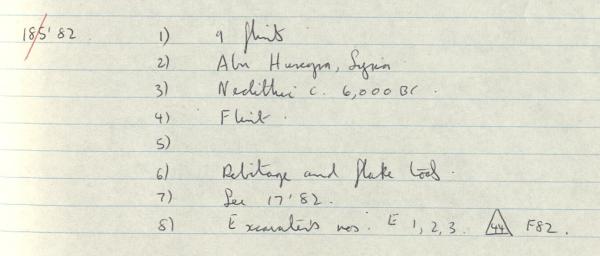 185'82 1) 9 flints
2) Abu Hureyra, Syria
3) Neolithic c. 6,000 BC.
4) Flint.
5)
6) Debitage and flake tools.
7) See 17'82.
8) Excavator's nos. E 1, 2, 3. 44 F82.